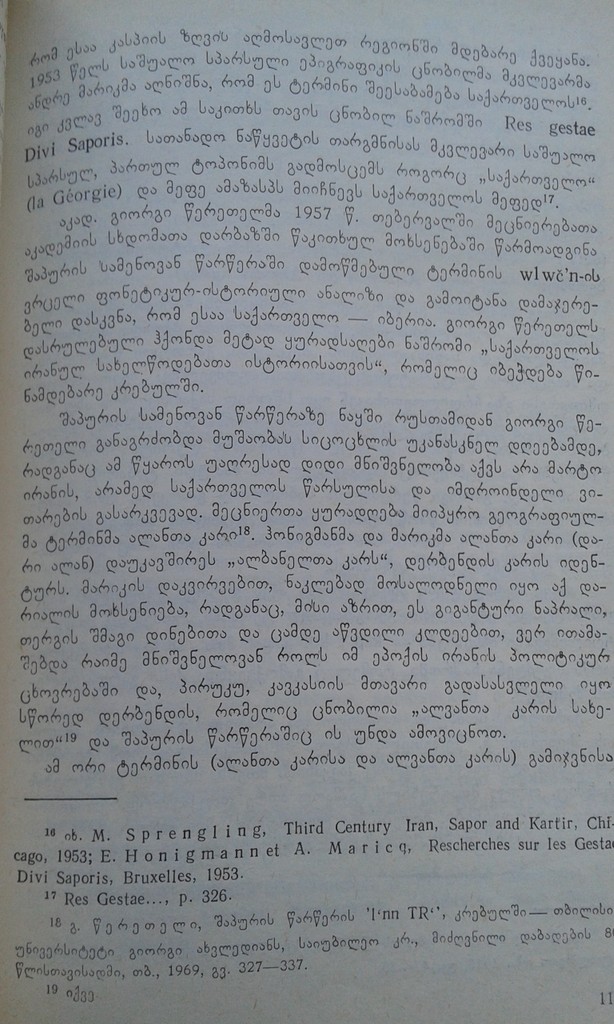 რომ ესაა კასპიის ზღვის აღმოსავლეთ რეგიონში მდებარე ქვეყანა.
1953 წელს საშუალო სპარსული ეპიგრაფიკის ცნობილმა მკვლევარმა
ანდრე მარიკმა აღნიშნა, რომ ეს ტერმინი შეესაბამება საქართველოს¹⁶.
იგი კვლავ შეეხო ამ საკითხს თავის ცნობილ ნაშრომში Res gestae
Divi Saporis. სათანადო ნაწყვეტის თარგმნისას მკვლევარი საშუალო
სპარსულ, პართულ ტოპონიმს გადმოსცემს როგორც „საქართველო“
(la Géorgie) და მეფე ამაზასპს მიიჩნევს საქართველოს მეფედ¹⁷.
აკად. გიორგი წერეთელმა 1957 წ. თებერვალში მეცნიერებათა
აკადემიის სხდომათა დარბაზში წაკითხულ მოხსენებაში წარმოადგინა
შაპურის სამენოვან წარწერაში დამოწმებული ტერმინის wlwč'n-ის
ვრცელი ფონეტიკურ-ისტორიული ანალიზი და გამოიტანა დამაჯერე-
ბელი დასკვნა, რომ ესაა საქართველო — იბერია. გიორგი წერეთელს
დასრულებული ჰქონდა მეტად ყურადსაღები ნაშრომი „საქართველოს
ირანულ სახელწოდებათა ისტორიისათვის“, რომელიც იბეჭდება წი-
ნამდებარე კრებულში.
შაპურის სამენოვან წარწერაზე ნაყში რუსთამიდან გიორგი წე-
რეთელი განაგრძობდა მუშაობას სიცოცხლის უკანასკნელ დღეებამდე,
რადგანაც ამ წყაროს უაღრესად დიდი მნიშვნელობა აქვს არა მარტო
ირანის, არამედ საქართველოს წარსულისა და იმდროინდელი ვი-
თარების გასარკვევად. მეცნიერთა ყურადღება მიიპყრო გეოგრაფიულ-
მა ტერმინმა ალანთა კარი¹⁸. ჰონიგმანმა და მარიკმა ალანთა კარი (და-
რი ალან) დაუკავშირეს „ალბანელთა კარს“, დერბენდის კარის იდენ-
ტურს. მარიკის დაკვირვებით, ნაკლებად მოსალოდნელი იყო აქ და-
რიალის მოხსენიება, რადგანაც, მისი აზრით, ეს გიგანტური ნაპრალი,
თერგის შმაგი დინებითა და ცამდე აწვდილი კლდეებით, ვერ ითამა-
შებდა რაიმე მნიშვნელოვან როლს იმ ეპოქის ირანის პოლიტიკურ
ცხოვრებაში და, პირუკუ, კავკასიის მთავარი გადასასვლელი იყო
სწორედ დერბენდის, რომელიც ცნობილია „ალვანთა კარის სახე-
ლით“¹⁹ და შაპურის წარწერაშიც ის უნდა ამოვიცნოთ.
ამ ორი ტერმინის (ალანთა კარისა და ალვანთა კარის) გამიჯვნისა
¹⁶ იხ. M. Sprengling, Third Century Iran, Sapor and Kartir, Chi-
cago, 1953; E. Honigmann et A. Maricq, Rescherches sur les Gesta
Divi Saporis, Bruxelles, 1953.
¹⁷ Res Gestae..., p. 326.
¹⁸ გ. წერეთელი, შაპურის წარწერის 'l'nn TR‘', კრებულში — თბილისი
უნივერსიტეტი გიორგი ახვლედიანს, საიუბილეო კრ., მიძღვნილი დაბადების 80
წლისთავისადმი, თბ., 1969, გვ. 327—337.
¹⁹ იქვე
11